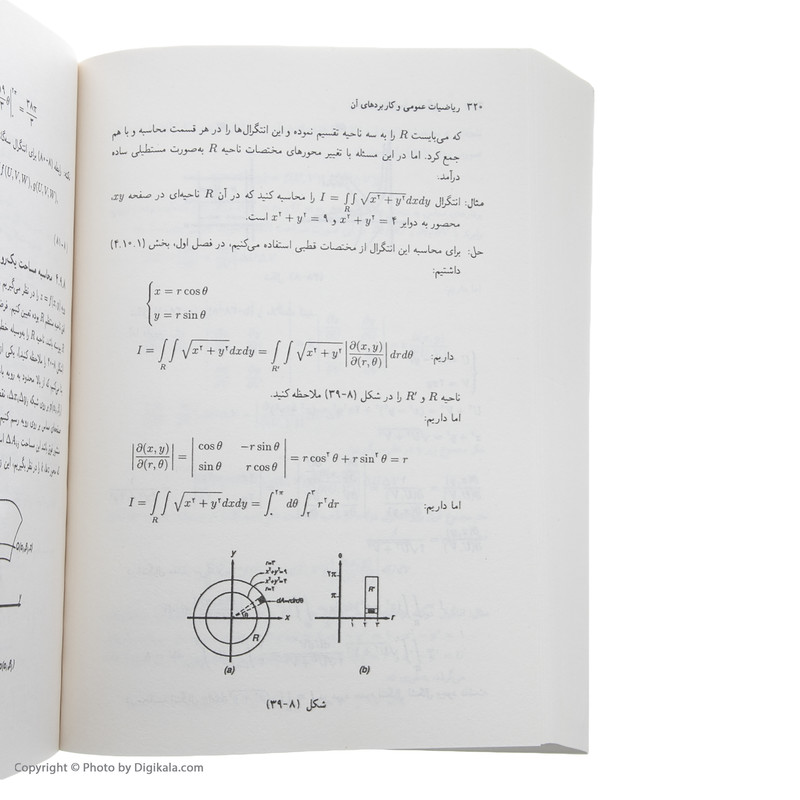 ۳۲۰ ریاضیات عمومی و کاربردهای آن
که می‌بایست R را به سه ناحیه تقسیم نموده و این انتگرال‌ها را در هر قسمت محاسبه و با هم
جمع کرد. اما در این مسئله با تغییر محورهای مختصات ناحیه R به‌صورت مستطیلی ساده
درآمد.
مثال: انتگرال I = ∬_R √(x² + y²) dxdy را محاسبه کنید که در آن R ناحیه‌ای در صفحه xy،
محصور به دوایر x² + y² = ۴ و x² + y² = ۹ است.
حل: برای محاسبه این انتگرال از مختصات قطبی استفاده می‌کنیم، در فصل اول، بخش (۴.۱۰.۱)
داشتیم:
x = r cos θ
y = r sin θ
داریم: I = ∬_R √(x² + y²) dxdy = ∬_R' √(x² + y²) |∂(x, y)/∂(r, θ)| drdθ
ناحیه R و R' را در شکل (۸-۳۹) ملاحظه کنید.
اما داریم:
|∂(x, y)/∂(r, θ)| = |cos θ −r sin θ; sin θ r cos θ| = r cos² θ + r sin² θ = r
اما داریم: I = ∬_R √(x² + y²) dxdy = ∫_۰^۲π dθ ∫_۲^۳ r² dr
y
r=۳
x²+y²=۹
x²+y²=۴
r=۲
dA=rdrdθ
θ
x
R
(a)
θ
۲π
π
R'
۱ ۲ ۳ r
(b)
شکل (۸-۳۹)
Copyright © Photo by Digikala.com